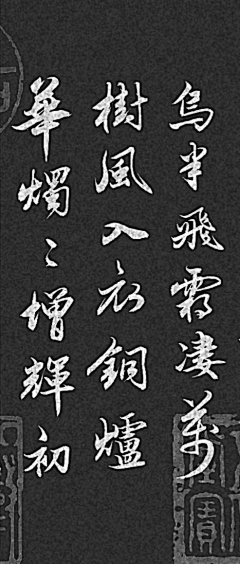 烏半飛霜凄萬
樹風入衣銅爐
華燭〻增輝初